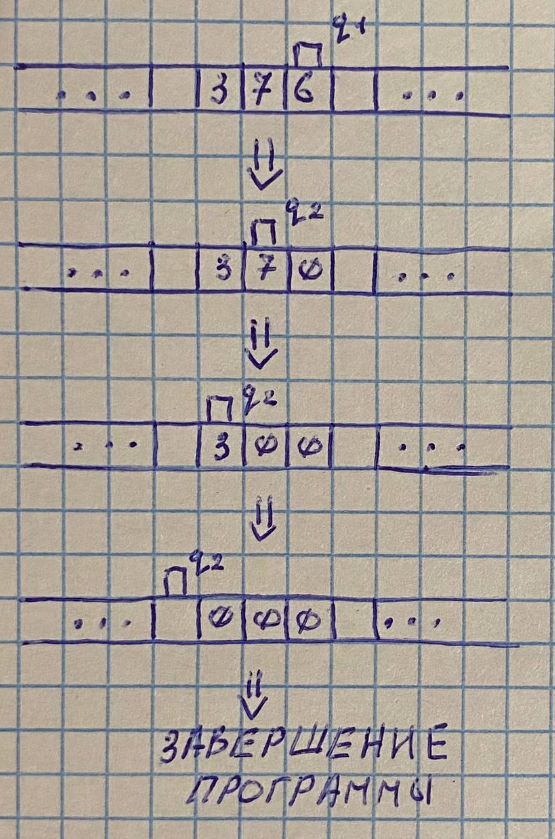 q1
... 3 7 6 ...
⇓
q2
... 3 7 ∅ ...
⇓
q2
... 3 ∅ ∅ ...
⇓
q2
... ∅ ∅ ∅ ...
⇓
ЗАВЕРШЕНИЕ
ПРОГРАММЫ